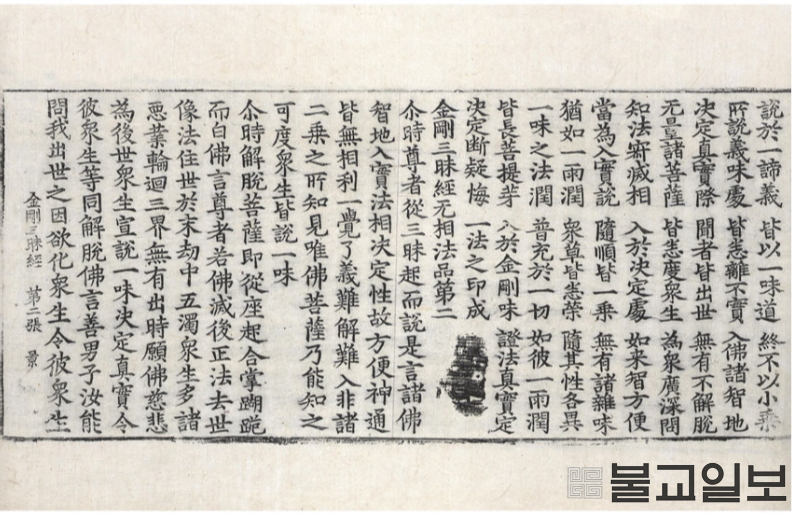 說於一諦義 皆以一味道 終不以小乘
所說義味處 皆悉離不實 入佛諸智地
決定真實際 聞者皆出世 無有不解脫
无量諸菩薩 皆悉度衆生 為衆廣深問
知法寂滅相 入於決定處 如来智方便
當為入實說 隨順皆一乗 無有諸雜味
猶如一雨潤 衆草皆悉榮 隨其性各異
一味之法潤 普充於一切 如彼一雨潤
皆長菩提芽 入於金剛味 證法真實定
決定断疑悔 一法之印成
金剛三昧經无相法品第二
尒時尊者從三昧起而說是言諸佛
智地入實法相決定性故方便神通
皆無相利一覺了義難解難入非諸
二乗之所知見唯佛菩薩乃能知之
可度衆生皆說一味
尒時解脫菩薩即從座起合掌䠒跪
而白佛言尊者若佛滅後正法去世
像法住世於末劫中五濁衆生多諸
悪業輪迴三界無有出時願佛慈悲
為後世衆生宣說一味決定真實令
彼衆生等同解脫佛言善男子汝能
問我出世之因欲化衆生令彼衆生
金剛三昧經 第二張 景
불교일보